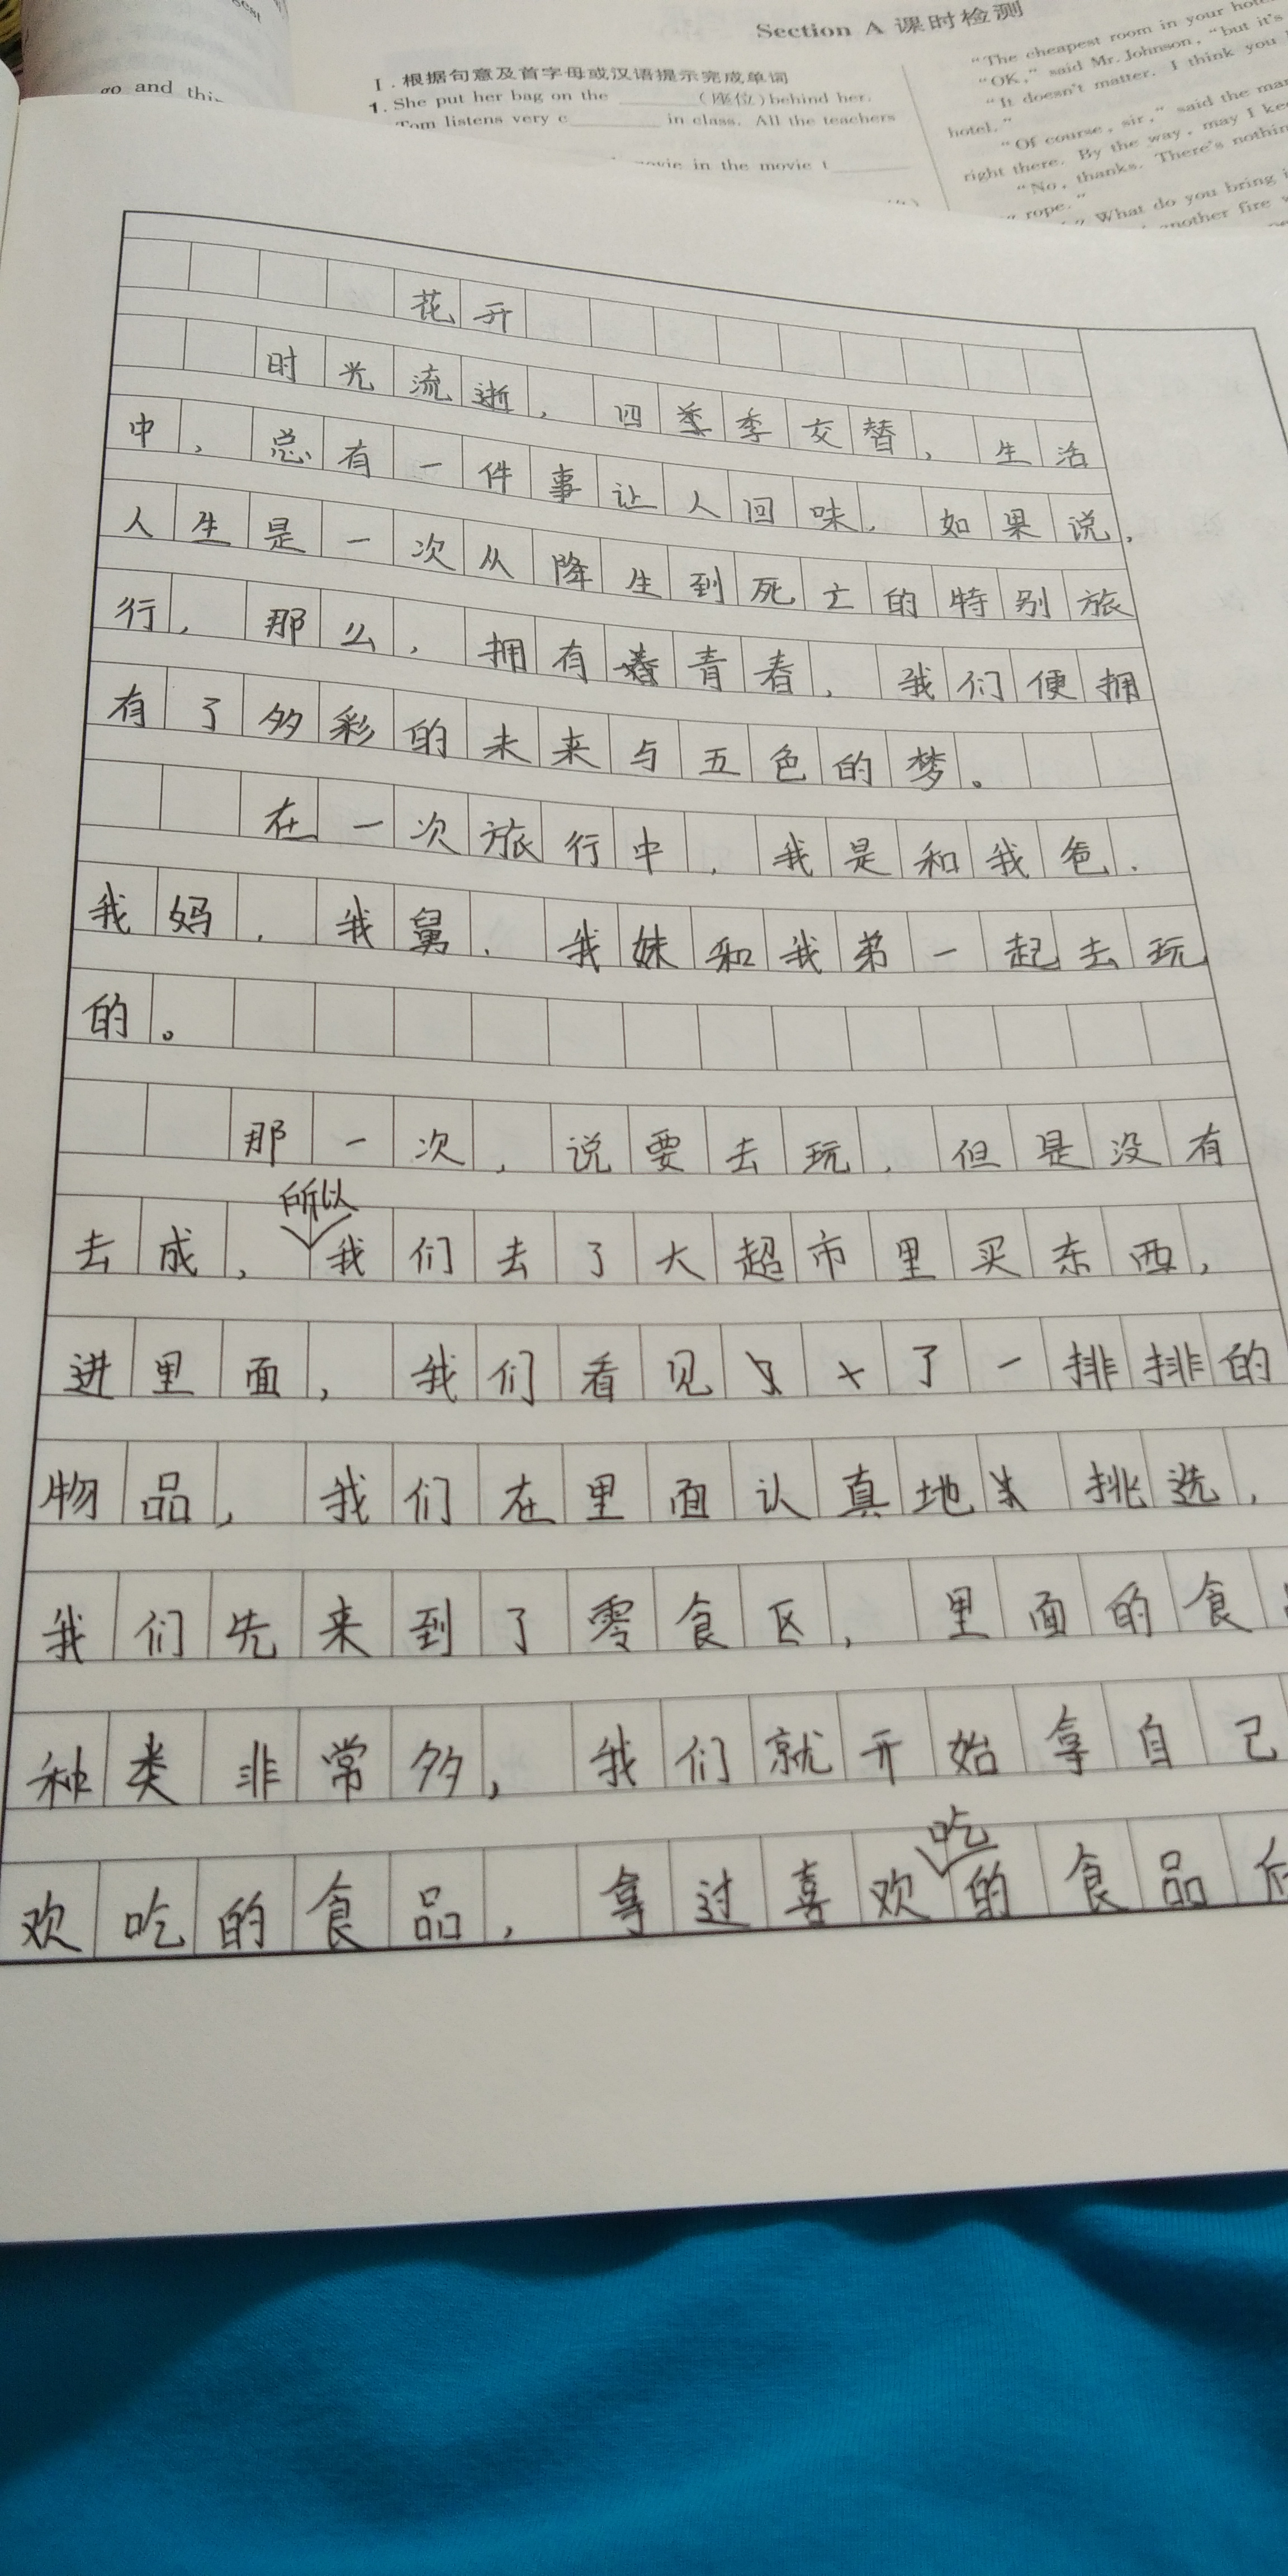 Section A 课时检测
Ⅰ. 根据句意及首字母或汉语提示完成单词
1. She put her bag on the ______ (座位) behind her.
Tom listens very c______ in class. All the teachers
movie in the movie t______
go and
"The cheapest room in your
"OK," said Mr. Johnson, "but it's
"It doesn't matter. I think you
hotel."
"Of course, sir," said the
right there. By the way, may I
"No, thanks. There's
rope."
What do you bring
another fire
花开
时光流逝，四季交替，生活
中，总有一件事让人回味，如果说，
人生是一次从降生到死亡的特别旅
行，那么，拥有青春，我们便拥
有了多彩的未来与五色的梦。
在一次旅行中，我是和我爸、
我妈、我舅、我妹和我弟一起去玩
的。
那一次，说要去玩，但是没有
去成，所以我们去了大超市里买东西，
进里面，我们看见了一排排的
物品，我们在里面认真地挑选，
我们先来到了零食区，里面的食
种类非常多，我们就开始拿自己
欢吃的食品，拿过喜欢吃的食品